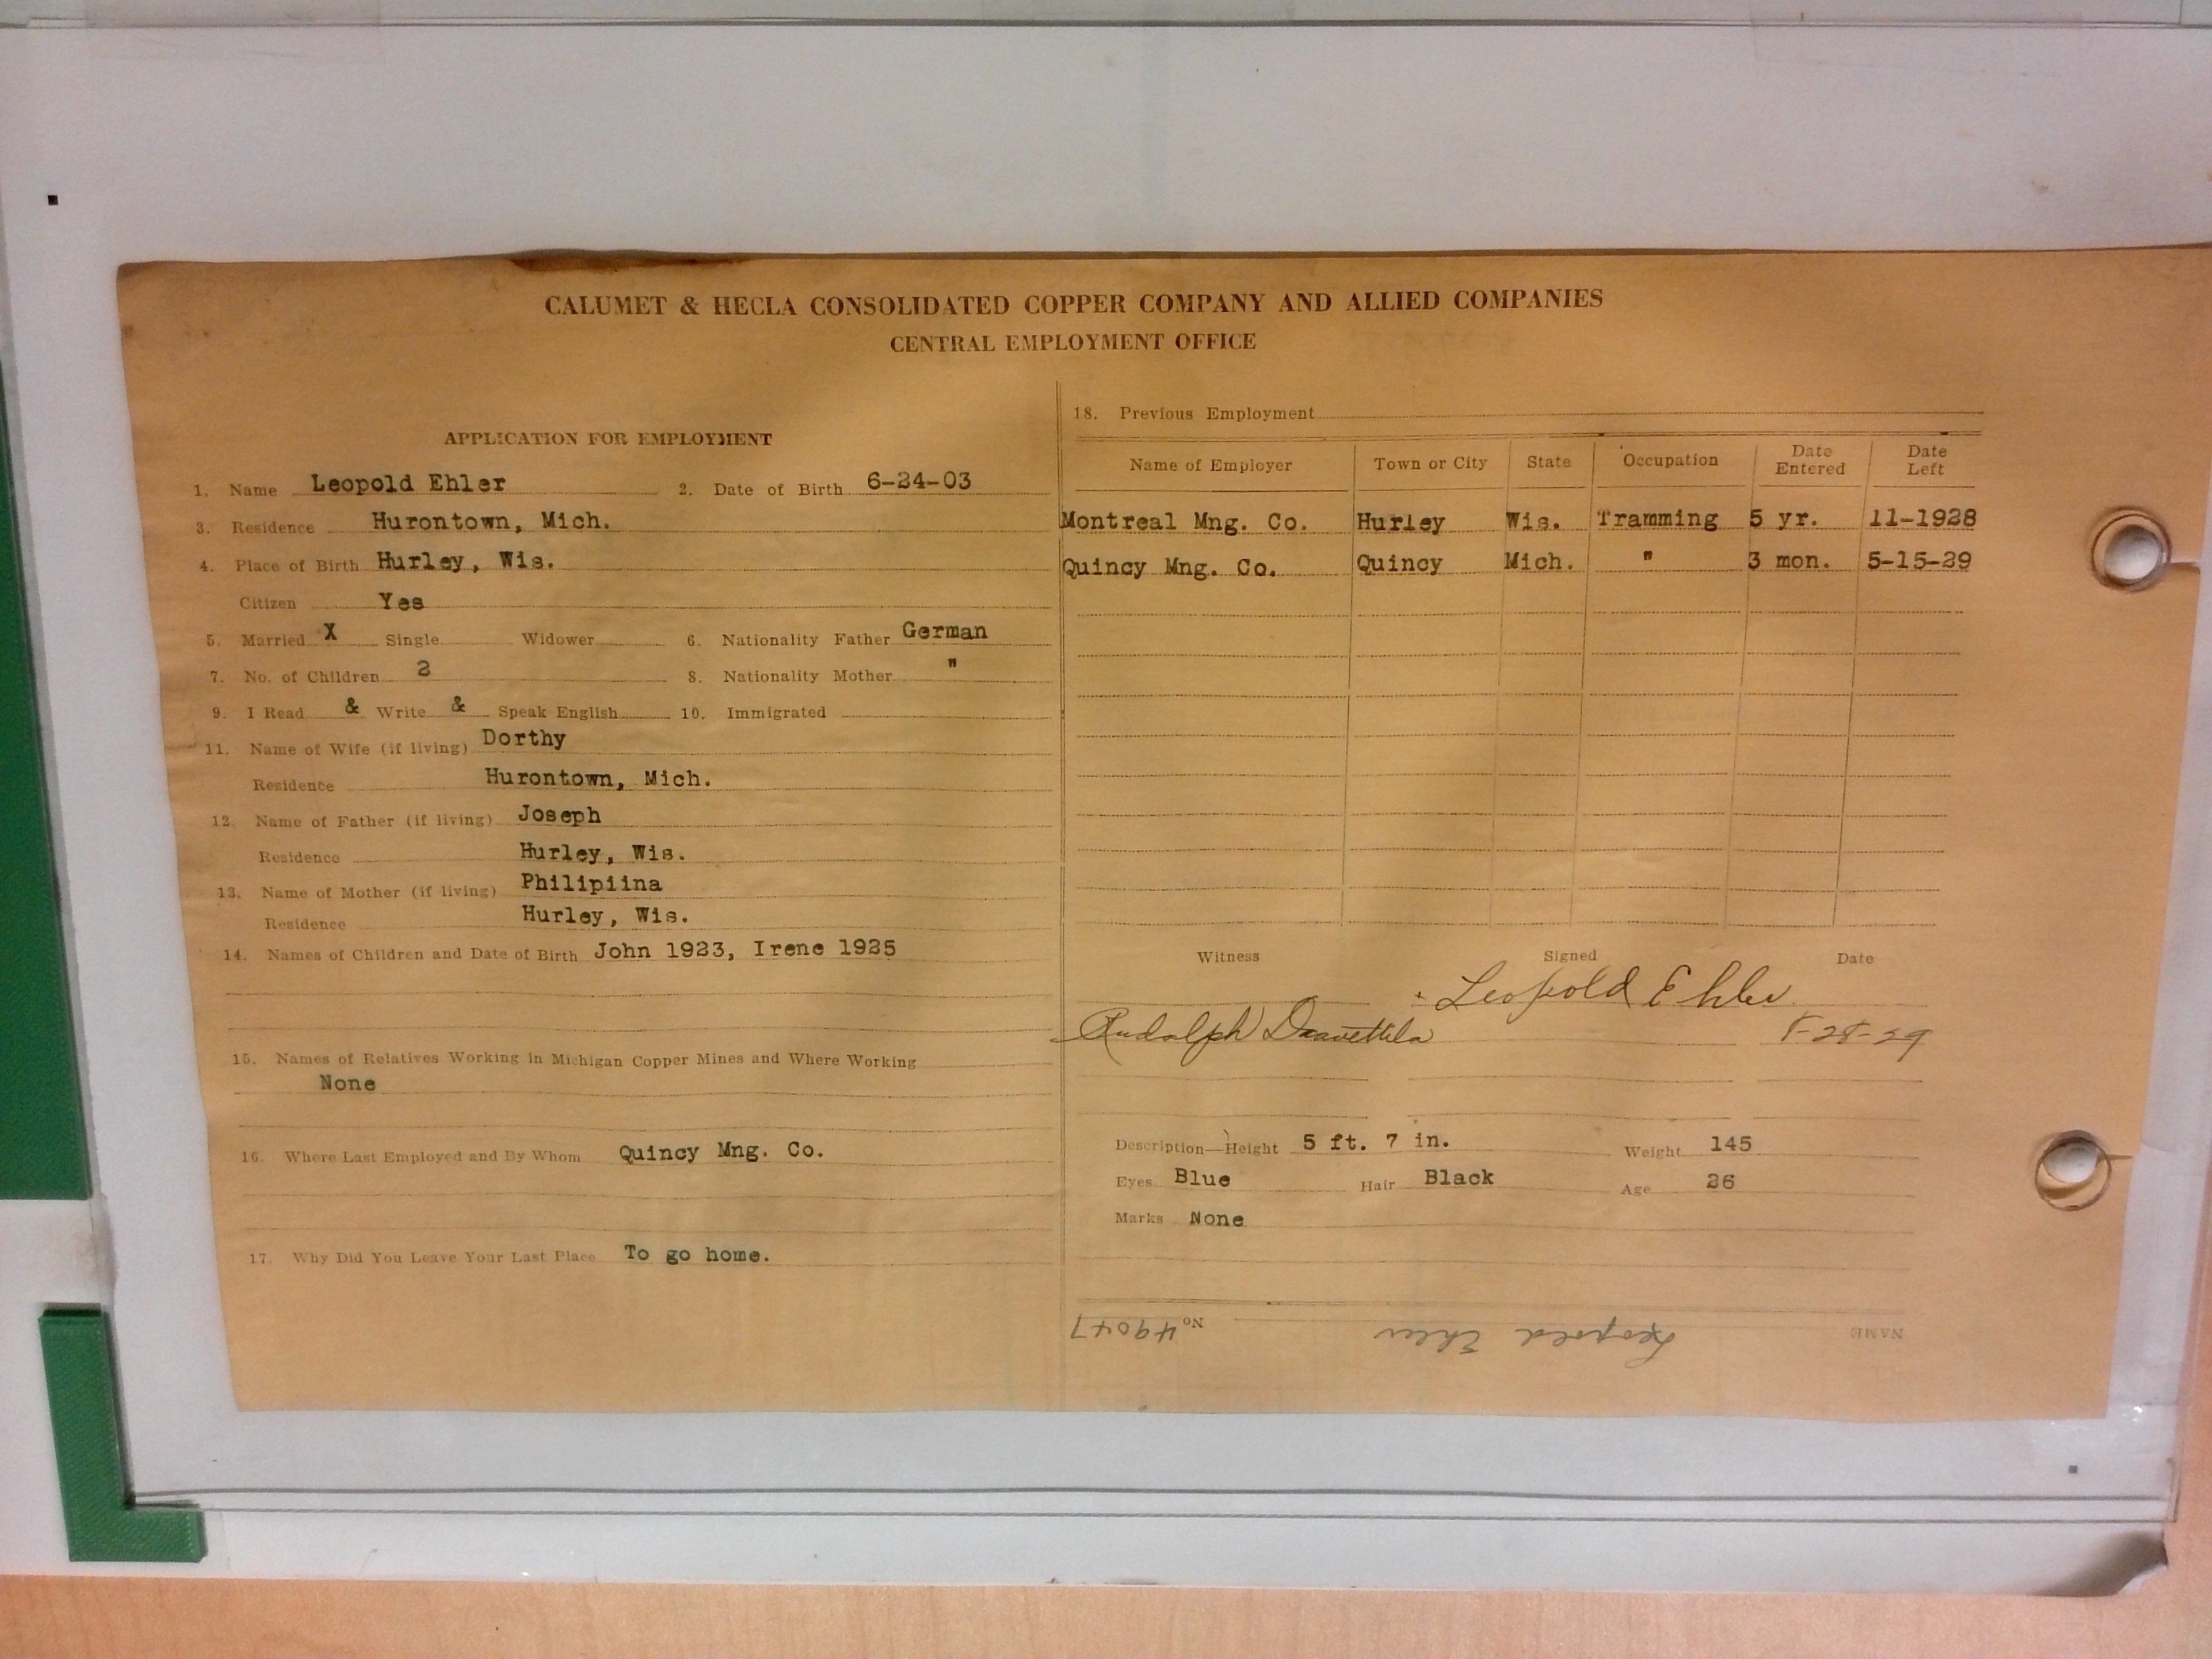 CALUMET & HECLA CONSOLIDATED COPPER COMPANY AND ALLIED COMPANIES
CENTRAL EMPLOYMENT OFFICE
APPLICATION FOR EMPLOYMENT
1. Name Leopold Ehler 2. Date of Birth 6-24-03
3. Residence Hurontown, Mich.
4. Place of Birth Hurley, Wis.
Citizen Yes
5. Married X Single Widower 6. Nationality Father German
7. No. of Children 2 8. Nationality Mother "
9. I Read & Write & Speak English 10. Immigrated
11. Name of Wife (if living) Dorthy
Residence Hurontown, Mich.
12. Name of Father (if living) Joseph
Residence Hurley, Wis.
13. Name of Mother (if living) Philipiina
Residence Hurley, Wis.
14. Names of Children and Date of Birth John 1923, Irene 1925
15. Names of Relatives Working in Michigan Copper Mines and Where Working
None
16. Where Last Employed and By Whom Quincy Mng. Co.
17. Why Did You Leave Your Last Place To go home.
18. Previous Employment
Name of Employer Town or City State Occupation Date Entered Date Left
Montreal Mng. Co. Hurley Wis. Tramming 5 yr. 11-1928
Quincy Mng. Co. Quincy Mich. " 3 mon. 5-15-29
Witness Signed Date
Leopold Ehler
Rudolph 8-28-29
Description—Height 5 ft. 7 in. Weight 145
Eyes Blue Hair Black Age 26
Marks None
NAME Leopold Ehler No 49047